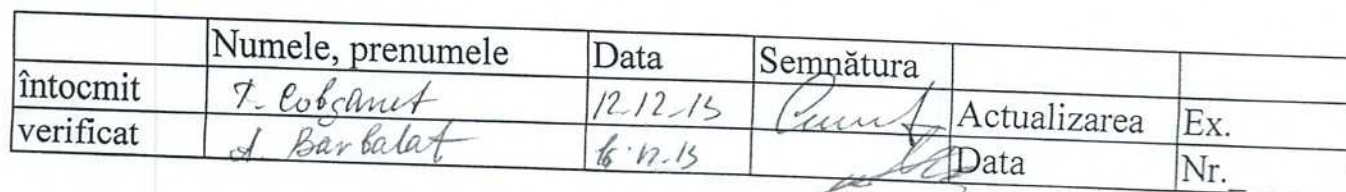 Numele, prenumele Data Semnătura
întocmit T. Cobzanet 12.12.13 Actualizarea Ex.
verificat A. Barbalat 16.12.13 Data Nr.